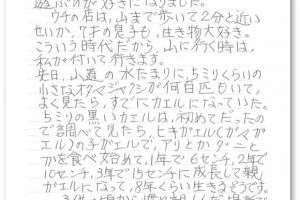 遊ぶのが好きになりました。
ウチの店は、山まで歩いて2分と近い
せいか、7才の息子も、生き物大好き。
こういう時代だから、山に行く時は、
私が付いて行きます。
先日、山道の水たまりに、5ミリくらいの
小さなオタマジャクシが何百匹もいて、
よく見たら、すでにカエルになっていた。
5ミリの黒いカエルは、初めてだったの
で調べて見たら、ヒキガエル(ガマガ
エル)の子ガエルで、アリとかダニと
かを食べ始めて、1年で6センチ、2年で
10センチ、3年で13センチに成長して親
ガエルになって、8年くらい生きるそうです。